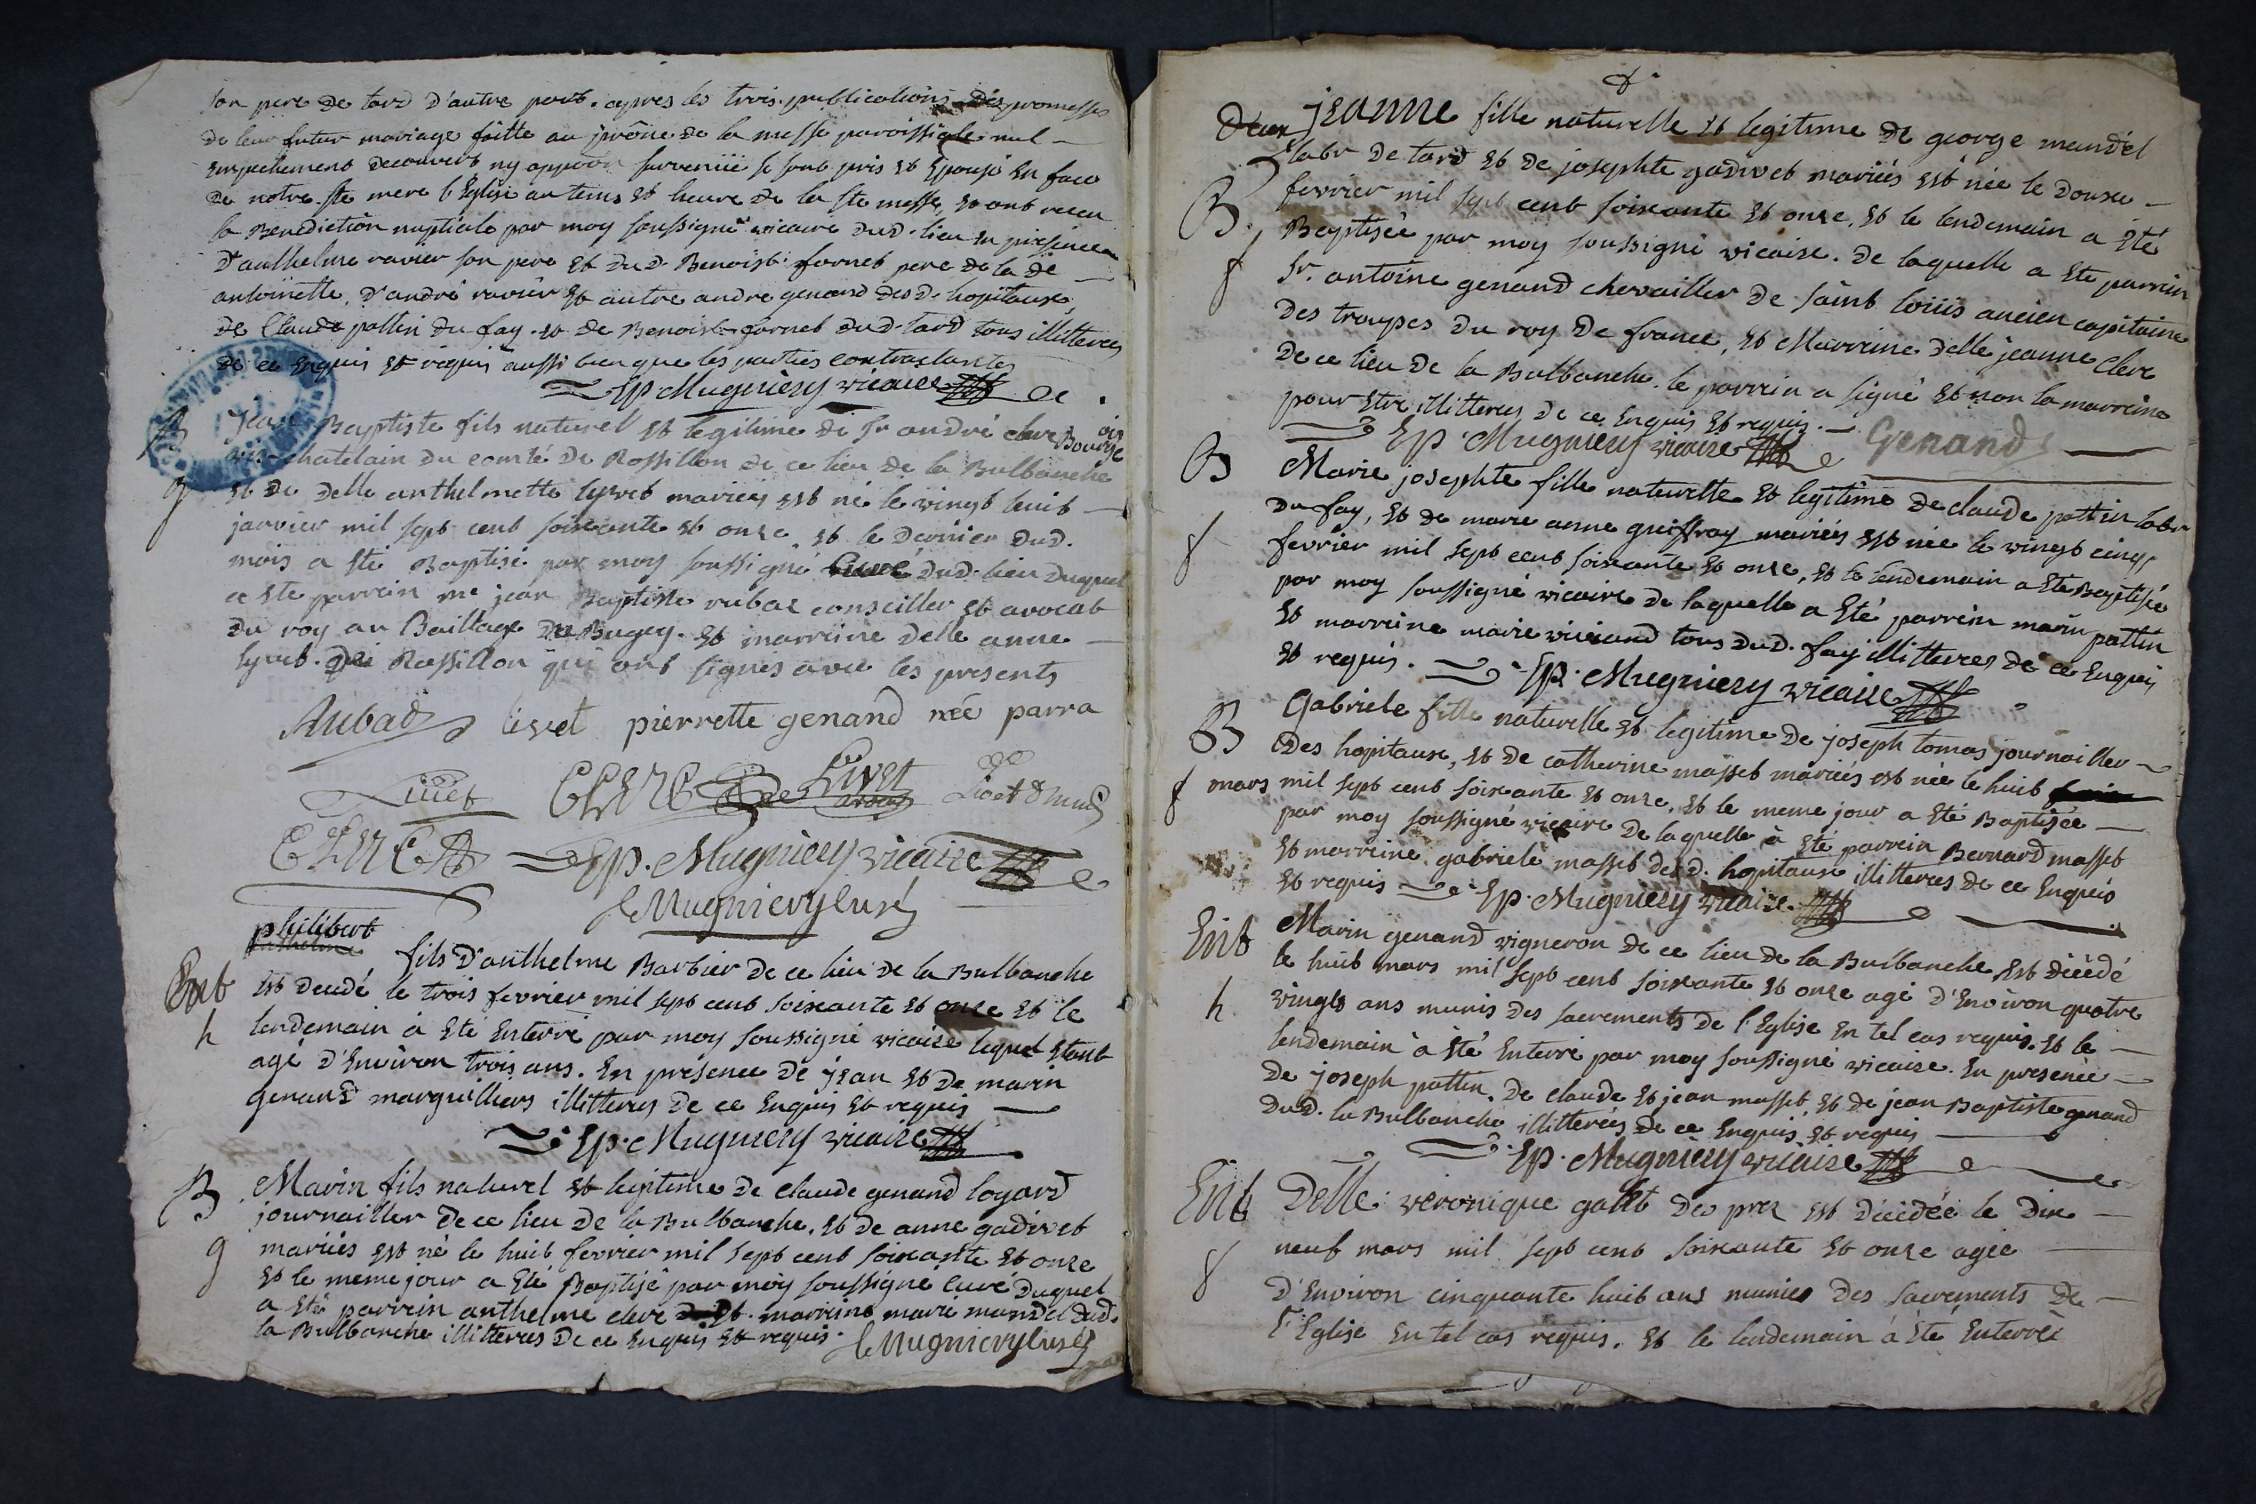 son pere de tard d'autre part. apres les trois publications des promesses
de leur futur mariage faitte au prône de la messe paroissiale nul
empechement decouvert ny opposon survenüe se sont pris et Epousé en face
de notre ste mere l'Eglise au tems et heure de la ste messe, et ont recu
la Benediction nuptiale par moy soussigné vicaire dud. lieu en présence
d'anthelme ravier son pere et dud. Benoist fornet pere de la de
antoinette, d'andré ravier et autre andre genand desd. hopitaux
de Claude pattin du fay. et de Benoist fornet dud. tard tous illitteres
de ce enquis et requis aussi bien que les parties contractantes
Ep. Mugniery vicaire
B Jean Baptiste fils naturel et legitime de sr andré clerc Bourgeois
chatelain du comté de Rossillon de ce lieu de la Bulbanche
g et de delle anthelmette lyvet mariés est né le vingt huit
janvier mil sept cent soixante et onze, et le dernier dud.
mois a été Baptisé par moy soussigné dud. lieu duquel
a ete parrein me jean Baptiste rubat conseiller et avocat
du roy au Baillage de Bugey. et marreine delle anne
lyvet. de Rossillon qui ont signés avec les presents
Rubat livet pierrette genand née parra
livet CLERC Livet avocat
CLERC Ep. Mugniery vicaire
Mugniery Curé
philibert
anthelme fils d'anthelme Barbier de ce lieu de la Bulbanche
Ent est decedé le trois fevrier mil sept cent soixante et onze et le
lendemain à ete Enterré par moy soussigné vicaire lequel etant
h agé d'Environ trois ans. En présence de jean et de marin
genand marguilliers illitteres de ce Enquis et requis
Ep. Mugniery vicaire
B Marin fils naturel et legitime de claude genand logard
journailler de ce lieu de la Bulbanche. et de anne gadivet
g mariés est né le huit fevrier mil sept cent soixante et onze
et le meme jour a eté Baptisé par moy soussigné curé duquel
a eté parrein anthelme clerc et marreine marie mandel dud.
la Bulbanche illitteres de ce Enquis et requis. Mugniery Curé
jeanne fille naturelle et legitime de george mandel
labr de tard et de josephte gadivet mariés est née le douze
B. fevrier mil sept cent soixante et onze, et le lendemain a été
f Baptisée par moy soussigné vicaire. de laquelle a ete parrein
sr. antoine genand chevailler de saint loüis ancien capitaine
des troupes du roy de france, et Marreine delle jeanne Clerc
de ce lieu de la Bulbanche. le parrein a signé et non la marreine
pour etre illitteres de ce Enquis et requis.
Ep. Mugniery vicaire Genand
B Marie josephte fille naturelle et legitime de claude pattin labr
du fay, et de marie anne guiffray mariés est née le vingt cinq
f fevrier mil sept cent soixante et onze, et le lendemain a ete Baptisée
par moy soussigné vicaire de laquelle a Eté parrein marin pattin
et marreine marie viviand tous dud. fay illitteres de ce Enquis
et requis. Ep. Mugniery vicaire
B Gabriele fille naturelle et legitime de joseph tomas journailler
des hopitaux, et de catherine masset mariés est née le huit
f mars mil sept cent soixante et onze, et le meme jour a eté Baptisée
par moy soussigné vicaire de laquelle à eté parrein Bernard masset
et marreine gabriele masset desd. hopitaux illitteres de ce Enquis
et requis Ep. Mugniery vicaire.
Ent Marin genand vigneron de ce lieu de la Bulbanche, est décédé
le huit mars mil sept cent soixante et onze agé d'Environ quatre
h vingts ans munis des sacrements de l'Eglise En tel cas requis. et le
lendemain à eté Enterré par moy soussigné vicaire. En presence
de joseph pattin, de claude et jean masset, et de jean Baptiste genand
dud. la Bulbanche illitterés de ce Enquis et requis
Ep. Mugniery vicaire
Ent Delle. veronique gallet des prez est décédée le dix
neuf mars mil sept cent soixante et onze agée
f d'Environ cinquante huit ans munies des sacrements de
l'Eglise en tel cas requis. et le lendemain à eté Enterrée